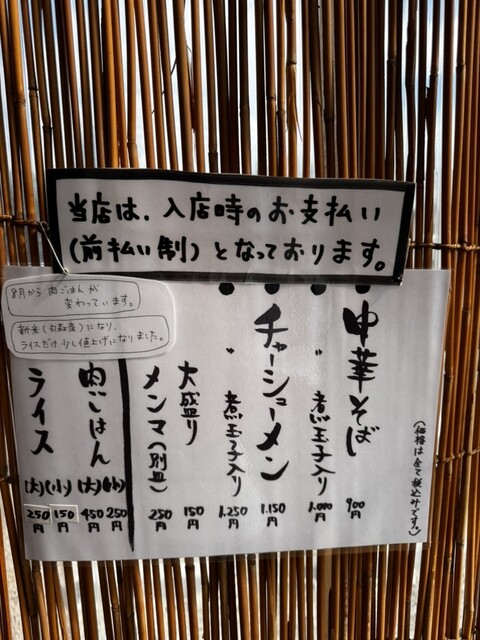 当店は、入店時のお支払い
(前払い制)となっております。
8月から 肉ごはんが
変わっています。
ライスだけ少し値上げになりました。
中華そば 900円
〃 煮玉子入り 1,000円
チャーシューメン 1,150円
〃 煮玉子入り 1,250円
大盛り 150円
メンマ(別皿) 250円
肉ごはん (小) 250円
(大) 450円
ライス (小) 150円
(大) 250円
(価格は全て税込みです。)